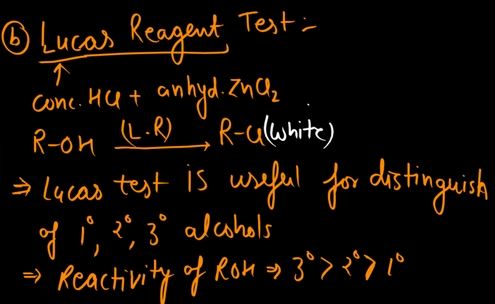 ⓑ Lucas Reagent Test :-
↑
conc. HCl + anhyd. ZnCl₂
R-OH —(L.R)→ R-Cl (White)
⇒ Lucas test is useful for distinguish
of 1°, 2°, 3° alcohols
⇒ Reactivity of ROH ⇒ 3° > 2° > 1°